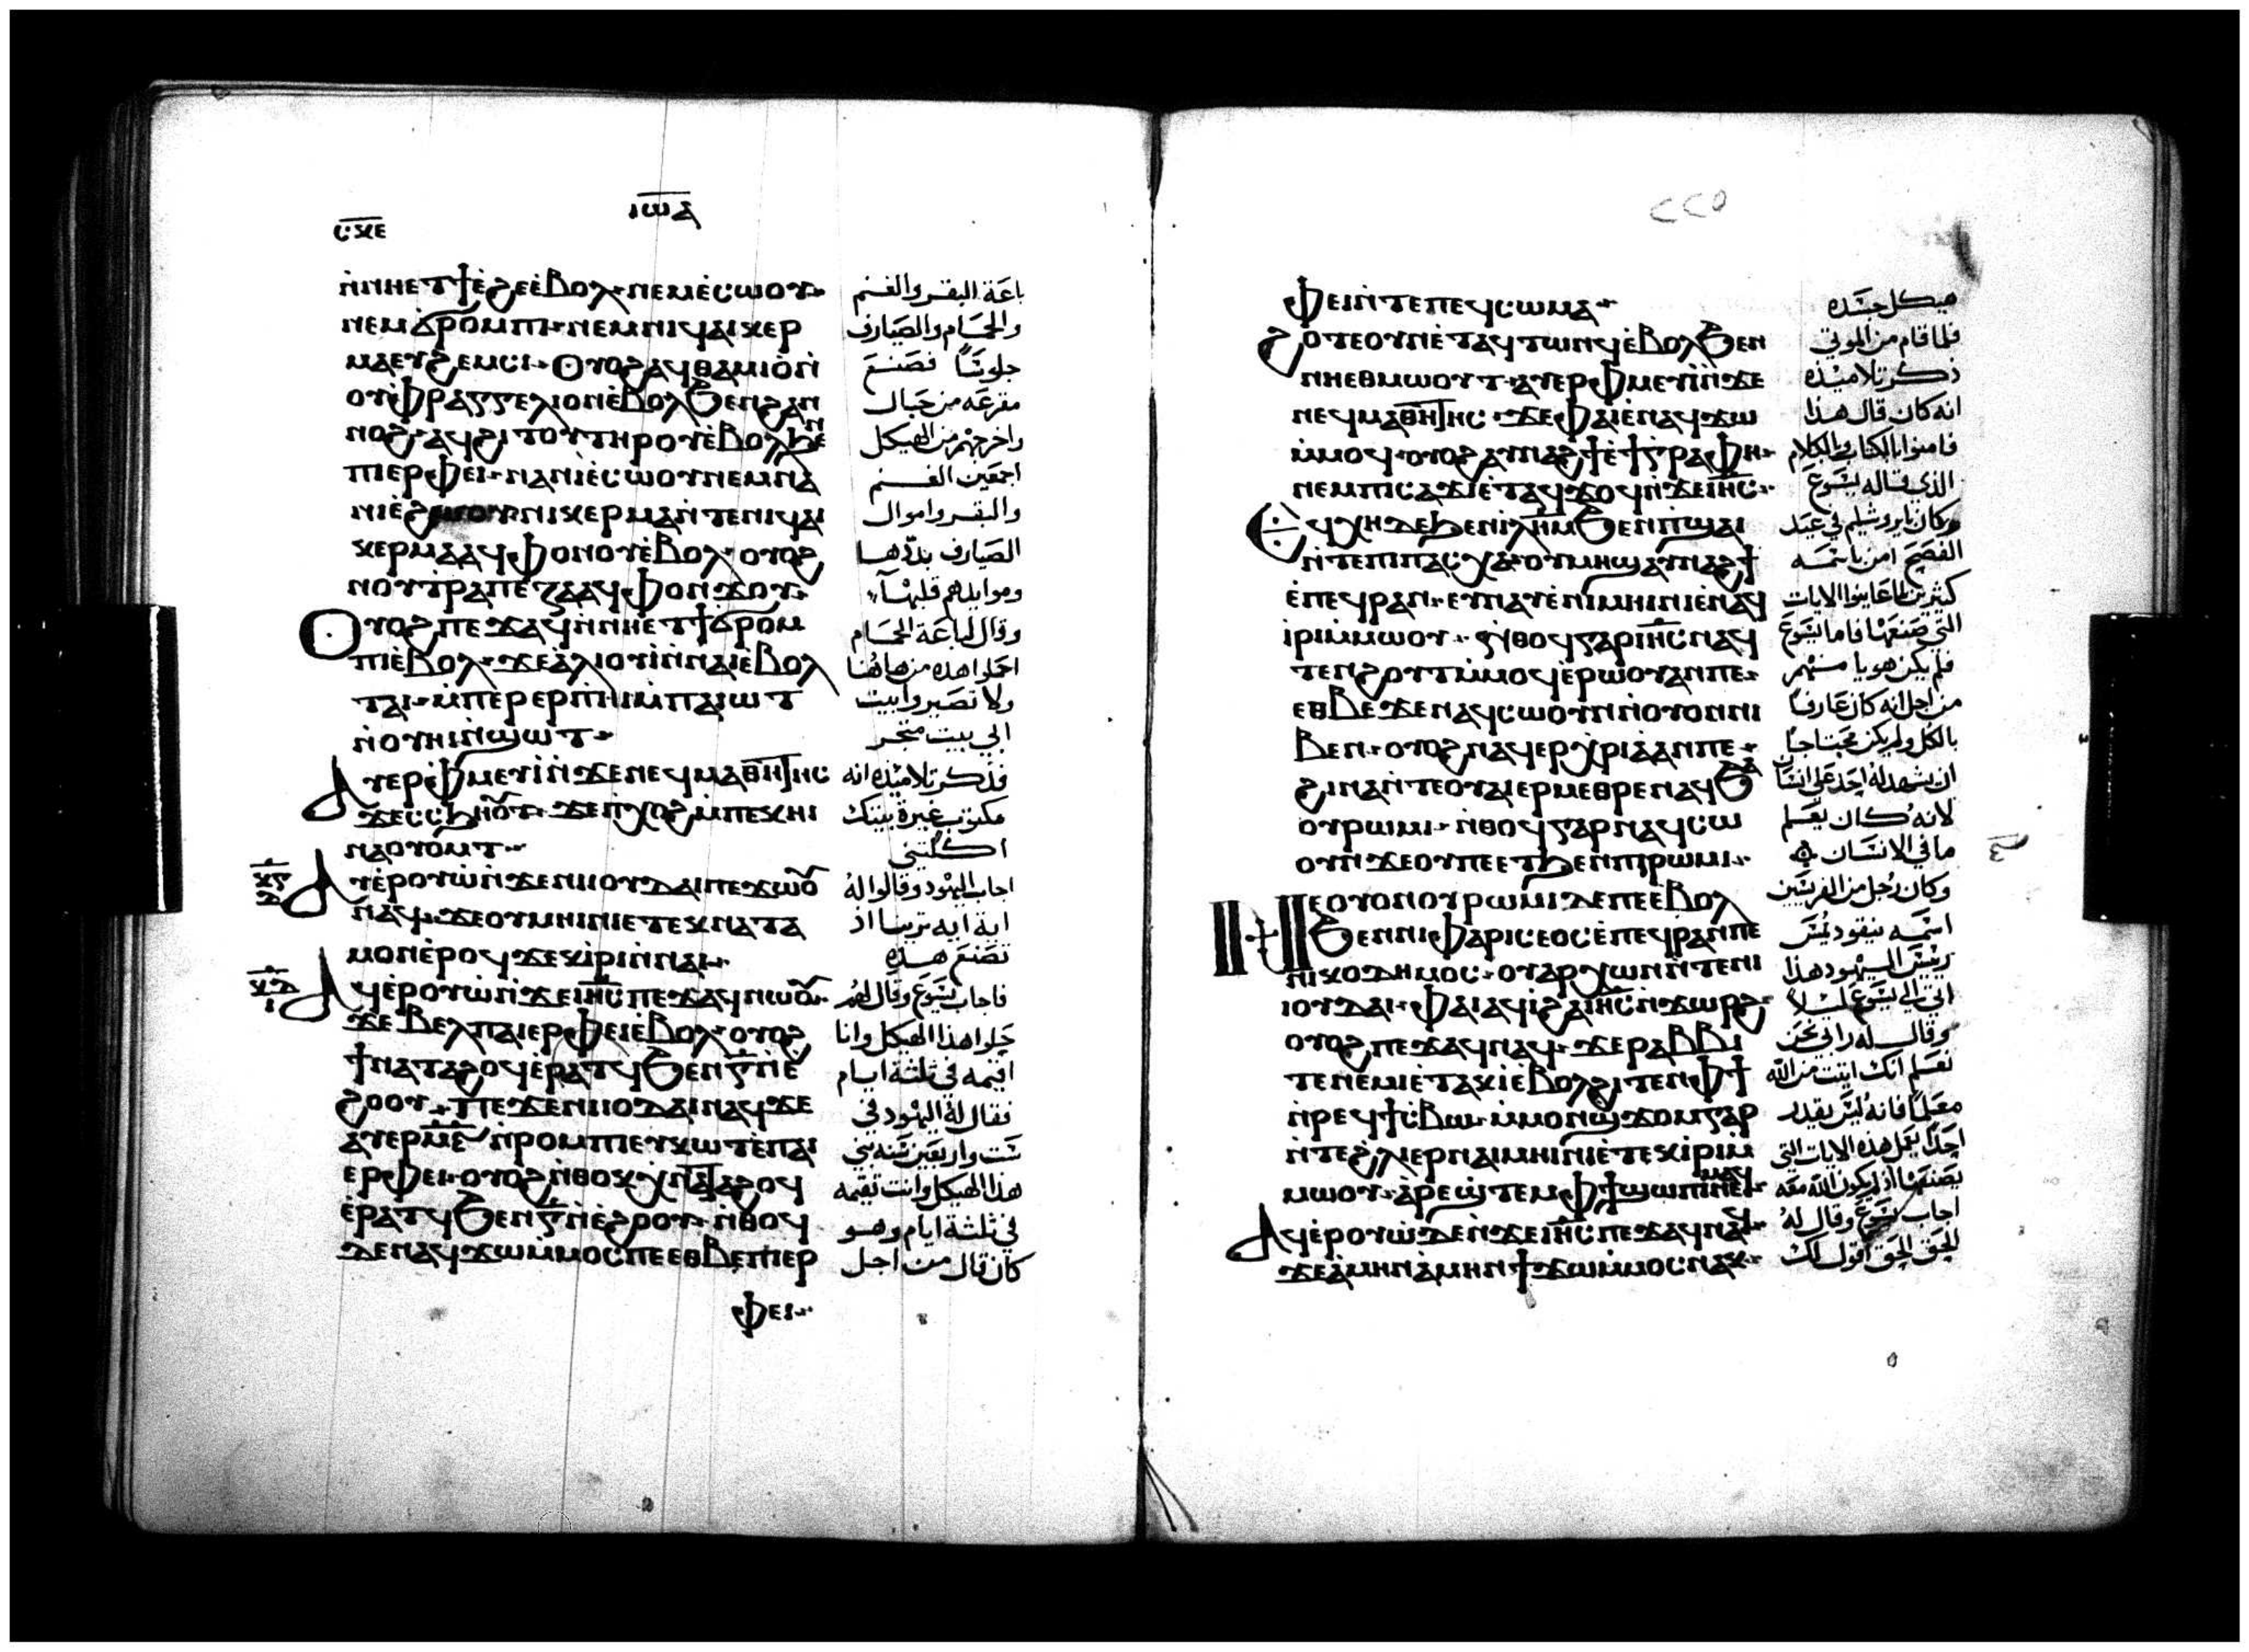 ⲓⲱⲁ
ⲥⲕⲉ
ⲛ̀ⲛⲏⲉⲧϯⲉ̀ϩⲉⲉ̀ⲃⲟⲗ ⲛⲉⲙⲉ̀ⲥⲱⲟⲩ
ⲛⲉⲙϭⲣⲟⲙⲡⲓ ⲛⲉⲙⲛⲓϥⲁⲓⲕⲉⲣ
ⲙⲁⲉⲩϩⲉⲙⲥⲓ ⲟⲩⲟϩⲁϥⲑⲁⲙⲓⲟ̀ⲛ̀
ⲟⲩⲫⲣⲁⲅⲅⲉⲗⲓⲟⲛⲉ̀ⲃⲟⲗϧⲉⲛϩⲁⲛ
ⲛⲟϩ ⲁϥϩⲓⲧⲟⲩⲧⲏⲣⲟⲩⲉ̀ⲃⲟⲗϧⲉⲛ
ⲡⲓⲉⲣⲫⲉⲓ ⲛⲁⲛⲓⲉ̀ⲥⲱⲟⲩⲛⲉⲙⲛⲁ
ⲛⲓⲉ̀ϩⲱⲟⲩ ⲛⲓⲕⲉⲣⲙⲁⲛ̀ⲧⲉⲛⲓϥⲁⲓ
ⲕⲉⲣⲙⲁⲁϥⲫⲟⲛⲟⲩⲉ̀ⲃⲟⲗ ⲟⲩⲟϩ
ⲛⲟⲩⲧⲣⲁⲡⲉⲍⲁⲁϥⲫⲟⲛϫⲟⲩ
ⲟⲩⲟϩ ⲡⲉϫⲁϥⲛ̀ⲛⲏⲉⲧϯϭⲣⲟⲙ
ⲡⲓⲉ̀ⲃⲟⲗ ϫⲉⲁ̀ⲗⲓⲟⲩⲓ̀ⲛ̀ⲛⲁⲓⲉ̀ⲃⲟⲗ
ⲧⲁⲓ ⲙ̀ⲡⲉⲣⲉⲣⲡⲏⲓⲙ̀ⲡⲁⲓⲱⲧ
ⲛ̀ⲟⲩⲏⲓⲛ̀ϣⲱⲧ
ⲁⲩⲉⲣⲫⲙⲉⲩⲓ̀ⲛ̀ϫⲉⲛⲉϥⲙⲁⲑⲏⲧⲏⲥ
ϫⲉⲥⲥϧⲏⲟⲩⲧ ϫⲉⲡ̀ⲭⲟϩⲙ̀ⲡⲉⲕⲏⲓ
ⲛⲁⲟⲩⲟⲙⲧ
ⲁⲩⲉ̀ⲣⲟⲩⲱ̀ⲛ̀ϫⲉⲛⲓⲓⲟⲩⲇⲁⲓⲡⲉϫⲱⲟⲩ
ⲛⲁϥ ϫⲉⲟⲩⲙⲏⲓⲛⲓⲉⲧⲉⲕⲛⲁⲧⲁ
ⲙⲟⲛⲉ̀ⲣⲟϥϫⲉⲕⲓ̀ⲣⲓⲛ̀ⲛⲁⲓ
ⲁϥⲉ̀ⲣⲟⲩⲱ̀ⲛ̀ϫⲉⲓⲏⲥⲡⲉϫⲁϥⲛⲱⲟⲩ
ϫⲉⲃⲉⲗⲡⲁⲓⲉⲣⲫⲉⲓⲉ̀ⲃⲟⲗ ⲟⲩⲟϩ
ϯⲛⲁⲧⲁϩⲟϥⲉ̀ⲣⲁⲧϥϧⲉⲛⲅⲛ̀ⲉ
ϩⲟⲟⲩ ⲡⲉϫⲉⲛⲓⲓⲟⲩⲇⲁⲓⲛⲁϥϫⲉ
ⲁⲩⲉⲣⲙⲉ ⲛ̀ⲣⲟⲙⲡⲓⲉⲩⲕⲱⲧⲉ̀ⲡⲁⲓ
ⲉⲣⲫⲉⲓ ⲟⲩⲟϩⲛ̀ⲑⲟⲕⲭⲛⲁⲧⲁϩⲟϥ
ⲉ̀ⲣⲁⲧϥϧⲉⲛⲅⲛ̀ⲉ̀ϩⲟⲟⲩ ⲛ̀ⲑⲟϥ
ⲇⲉⲛⲁϥϫⲱⲙ̀ⲙⲟⲥⲡⲉⲉⲑⲃⲉⲡⲓⲉⲣ
ⲫⲉⲓ
باعة البقر والغنم
والحمام والصيارف
جلوسًا فصنع
مقرعه من حبال
واخرجهم من الهيكل
اجمعين الغنم
والبقر واموال
الصيارف بددها
وموايدهم قلبها
وقال لباعة الحمام
احملوا هذه من هاهنا
ولا تصيروا بيت
ابي بيت متجر
فذكر تلاميذه انه
مكتوب غيرة بيتك
اكلتني
اجاب اليهود وقالوا له
اية ايه ترينا اذ
تصنع هذه
فاجاب يسوع وقال لهم
حلوا هذا الهيكل وانا
اقيمه في ثلثة ايام
فقال له اليهود في
ست واربعين سنه بني
هذا الهيكل وانت تقيمه
في ثلثة ايام وهو
كان قال من اجل
ⲫⲉⲓⲛ̀ⲧⲉⲡⲉϥⲥⲱⲙⲁ
ϩⲟⲧⲉⲟⲩⲛⲉ̀ⲧⲁϥⲧⲱⲛϥⲉ̀ⲃⲟⲗϧⲉⲛ
ⲛⲏⲉⲑⲙⲱⲟⲩⲧ ⲁⲩⲉⲣⲫⲙⲉⲩⲓ̀ⲛ̀ϫⲉ
ⲛⲉϥⲙⲁⲑⲏⲧⲏⲥ ϫⲉⲫⲁⲓⲉ̀ⲛⲁϥϫⲱ
ⲙ̀ⲙⲟϥ ⲟⲩⲟϩⲁⲩⲛⲁϩϯⲉ̀ϯⲅⲣⲁⲫⲏ
ⲛⲉⲙⲡⲓⲥⲁϫⲓⲉ̀ⲧⲁϥϫⲟϥⲛ̀ϫⲉⲓⲏⲥ
ⲉϥⲭⲏⲇⲉϧⲉⲛⲓⲗⲏⲙϧⲉⲛⲡ̀ϣⲁⲓ
ⲛ̀ⲧⲉⲡⲓⲡⲁⲥⲭⲁ ⲟⲩⲙⲏϣⲁⲩⲛⲁϩϯ
ⲉ̀ⲡⲉϥⲣⲁⲛ ⲉⲩⲛⲁⲩⲉ̀ⲛⲓⲙⲏⲓⲛⲓⲉ̀ⲛⲁϥ
ⲓ̀ⲣⲓⲙ̀ⲙⲱⲟⲩ ⲛ̀ⲑⲟϥⲅⲁⲣⲓⲏⲥⲛⲁϥ
ⲧⲉⲛϩⲟⲩⲧⲙ̀ⲙⲟϥⲉ̀ⲣⲱⲟⲩⲁⲛⲡⲉ
ⲉⲑⲃⲉϫⲉⲛⲁϥⲥⲱⲟⲩⲛⲛ̀ⲟⲩⲟⲛⲛⲓ
ⲃⲉⲛ ⲟⲩⲟϩⲛⲁϥⲉⲣⲭⲣⲓⲁ̀ⲁⲛⲡⲉ
ϩⲓⲛⲁⲛ̀ⲧⲉⲟⲩⲁⲓⲉⲣⲙⲉⲑⲣⲉⲛⲁϥϧⲁ
ⲟⲩⲣⲱⲙⲓ ⲛ̀ⲑⲟϥⲅⲁⲣⲛⲁϥⲥⲱ
ⲟⲩⲛϫⲉⲟⲩⲡⲉⲉⲧϧⲉⲛⲡⲓⲣⲱⲙⲓ
ⲛⲉⲟⲩⲟⲛⲟⲩⲣⲱⲙⲓⲇⲉⲡⲉⲉ̀ⲃⲟⲗ
ϧⲉⲛⲛⲓⲫⲁⲣⲓⲥⲉⲟⲥⲉ̀ⲡⲉϥⲣⲁⲛⲡⲉ
ⲛⲓⲕⲟⲇⲏⲙⲟⲥ ⲟⲩⲁⲣⲭⲱⲛⲛ̀ⲧⲉⲛⲓ
ⲓⲟⲩⲇⲁⲓ ⲫⲁⲓⲁϥⲓ̀ϩⲁⲓⲏⲥⲛ̀ϫⲱⲣϩ
ⲟⲩⲟϩⲡⲉϫⲁϥⲛⲁϥ ϫⲉⲣⲁⲃⲃⲓ
ⲧⲉⲛⲉ̀ⲙⲓⲉ̀ⲧⲁⲕⲓ̀ⲉ̀ⲃⲟⲗϩⲓⲧⲉⲛⲫϯ
ⲛ̀ⲣⲉϥϯⲥ̀ⲃⲱ ⲙ̀ⲙⲟⲛϣϫⲟⲙⲅⲁⲣ
ⲛ̀ⲧⲉϩⲗⲓⲉⲣⲛⲁⲓⲙⲏⲓⲛⲓⲉ̀ⲧⲉⲕⲓ̀ⲣⲓⲙ̀
ⲙⲱⲟⲩ ⲁ̀ⲣⲉϣⲧⲉⲙⲫϯϣⲱⲡⲓⲛⲉⲙⲁϥ
ⲁϥⲉ̀ⲣⲟⲩⲱ̀ⲇⲉⲛ̀ϫⲉⲓⲏⲥⲡⲉϫⲁϥⲛⲁϥ
ϫⲉⲁ̀ⲙⲏⲛⲁ̀ⲙⲏⲛϯϫⲱⲙ̀ⲙⲟⲥⲛⲁⲕ
هيكل جسده
فلما قام من الموتي
ذكر تلاميذه
انه كان قال هذا
فامنوا بالكتاب والكلام
الذي قاله يسوع
وكان بايروشليم في عيد
الفصح امن باسمه
كثيرين لما عاينوا الايات
التي صنعها فاما يسوع
فلم يكن هو يامنهم
من اجل انه كان عارفًا
بالكل ولم يكن محتاجًا
ان يشهد له احد علي انسان
لانه كان يعلم
ما في الانسان
وكان رجل من الفريسين
اسمه نيقوديمس
رييس اليهود هذا
اتي الي يسوع ليلاً
وقال له رابي نحن
نعلم انك اتيت من الله
معلمًا فانه ليس يقدر
احدًا يعمل هذه الايات التي
يصنعها اذ لم يكون الله معه
اجاب يسوع وقال له
الحق الحق اقول لك